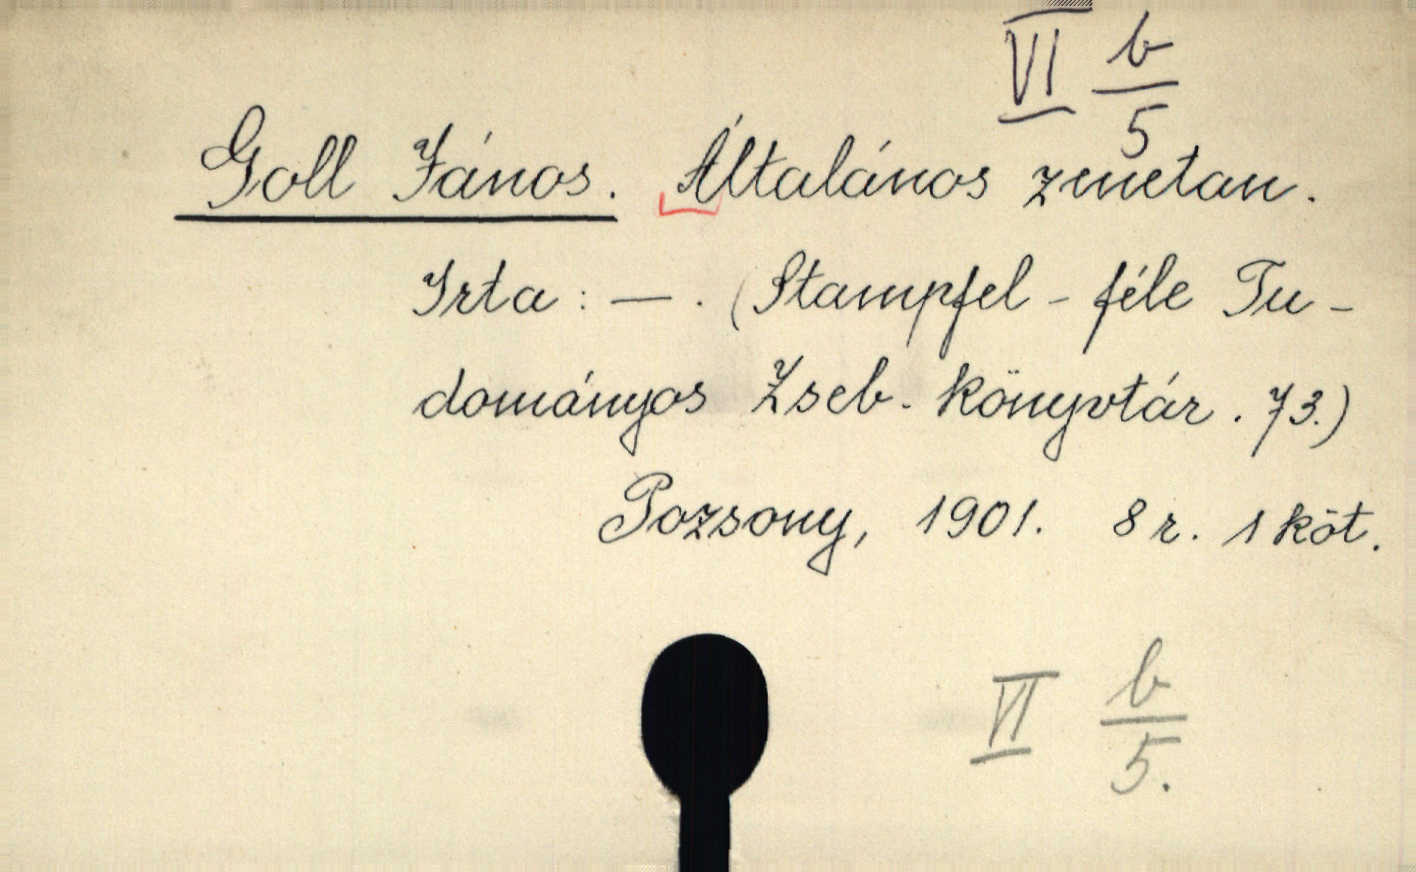 VI b/5
Goll János. Általános zenetan.
Irta: —. (Stampfel-féle Tu-
dományos Zseb-könyvtár. 73.)
Pozsony, 1901. 8 r. 1 köt.
VI b/5.